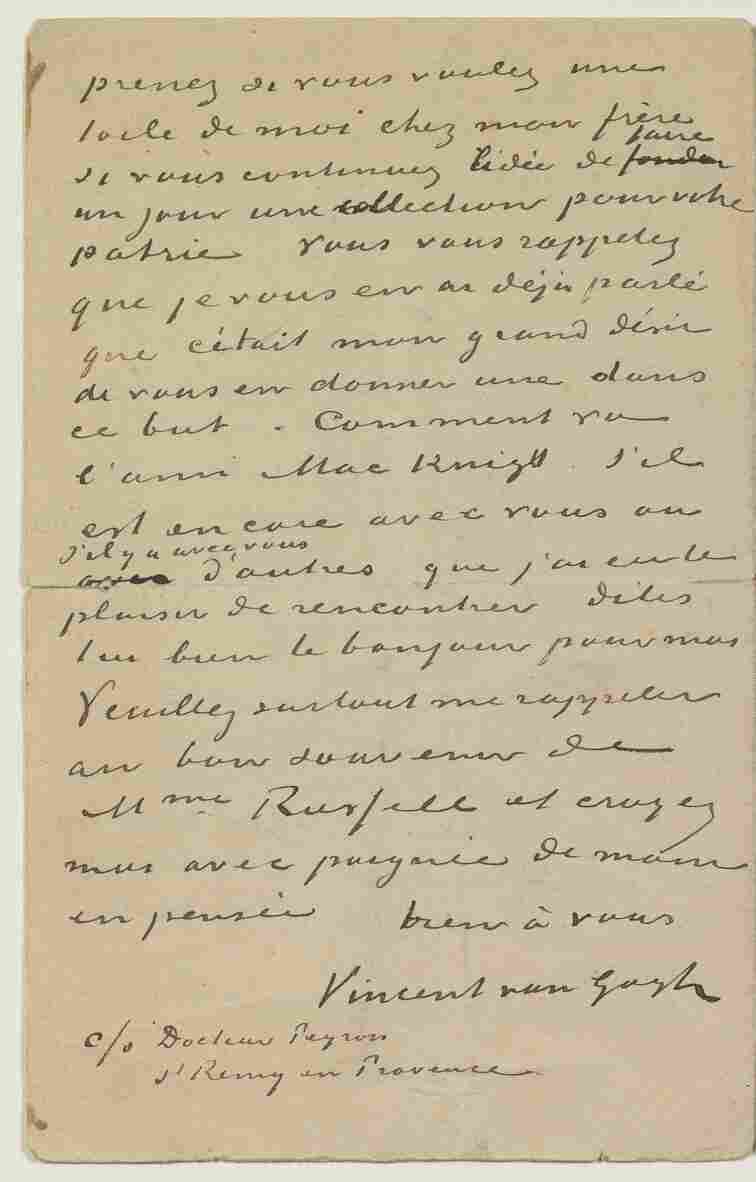 prenez si vous voulez une
toile de moi chez mon frère
si vous continuez l'idée de fonder faire
un jour une collection pour votre
patrie Vous vous rappelez
que je vous en ai déjà parlé
que c'était mon grand désir
de vous en donner une dans
ce but. Comment va
l'ami Mac Knight. S'il
est encore avec vous ou
s'il y a avec vous
d'autres que j'ai eu le
plaisir de rencontrer dites
leur bien le bonjour pour moi
Veuillez surtout me rappeler
au bon souvenir de
Mme Russell et croyez
moi avec poignée de main
en pensée bien à vous
Vincent van Gogh
c/o Docteur Peyron
St Remy en Provence